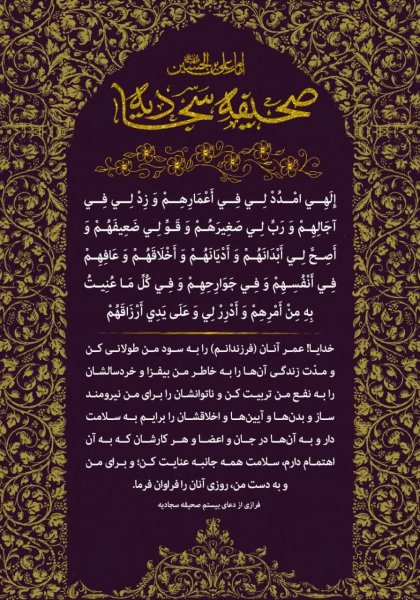 امام علی بن الحسین
صحیفه سجادیه
إِلَهِي امْدُدْ لِي فِي أَعْمَارِهِمْ وَ زِدْ لِي فِي
آجَالِهِمْ وَ رَبِّ لِي صَغِيرَهُمْ وَ قَوِّ لِي ضَعِيفَهُمْ وَ
أَصِحَّ لِي أَبْدَانَهُمْ وَ أَدْيَانَهُمْ وَ أَخْلَاقَهُمْ وَ عَافِهِمْ
فِي أَنْفُسِهِمْ وَ فِي جَوَارِحِهِمْ وَ فِي كُلِّ مَا عُنِيتُ
بِهِ مِنْ أَمْرِهِمْ وَ أَدْرِرْ لِي وَ عَلَى يَدِي أَرْزَاقَهُمْ
خدایا! عمر آنان (فرزندانم) را به سود من طولانی کن
و مدّت زندگی آن‌ها را به خاطر من بیفزا و خردسالشان
را به نفع من تربیت کن و ناتوانشان را برای من نیرومند
ساز و بدن‌ها و آیین‌ها و اخلاقشان را برایم به سلامت
دار و به آن‌ها در جان و اعضا و هر کارشان که به آن
اهتمام دارم، سلامت همه جانبه عنایت کن؛ و برای من
و به دست من، روزی آنان را فراوان فرما.
فرازی از دعای بیستم صحیفه سجادیه